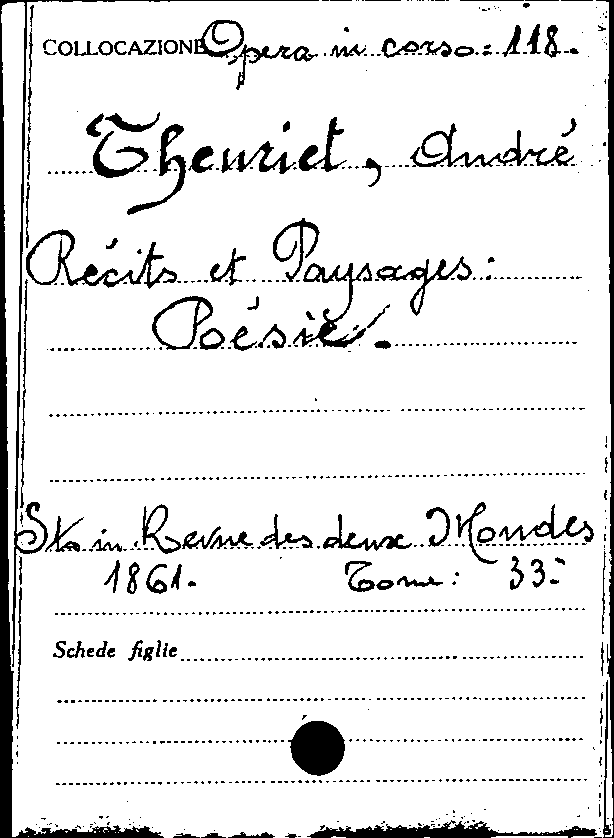 COLLOCAZIONE Opera in corso: 118.
Theuriet, André
Récits et Paysages:
Poésie.
Sta in Revue des deux Mondes
1861. Tome: 33.
Schede figlie